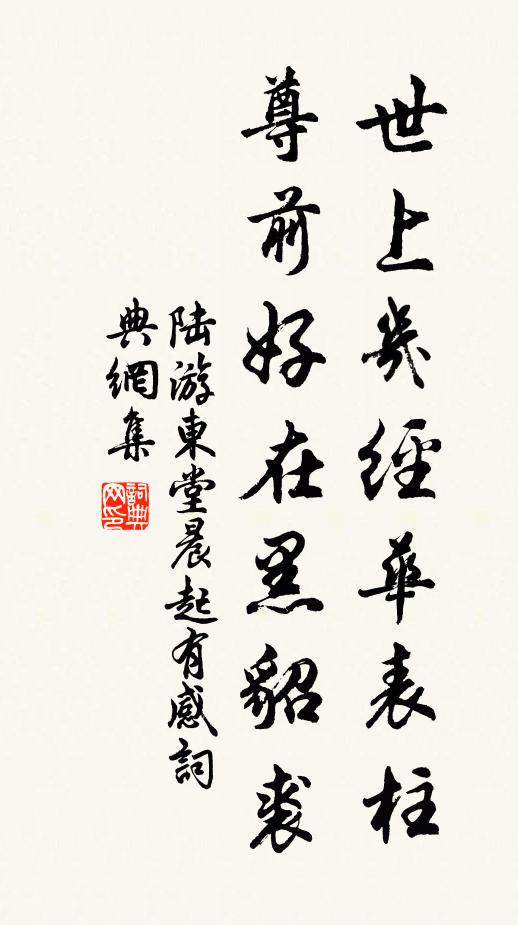 世上幾經華表柱
尊前好在黑貂裘
陸游東堂晨起有感詞
典網集
詞典
网印